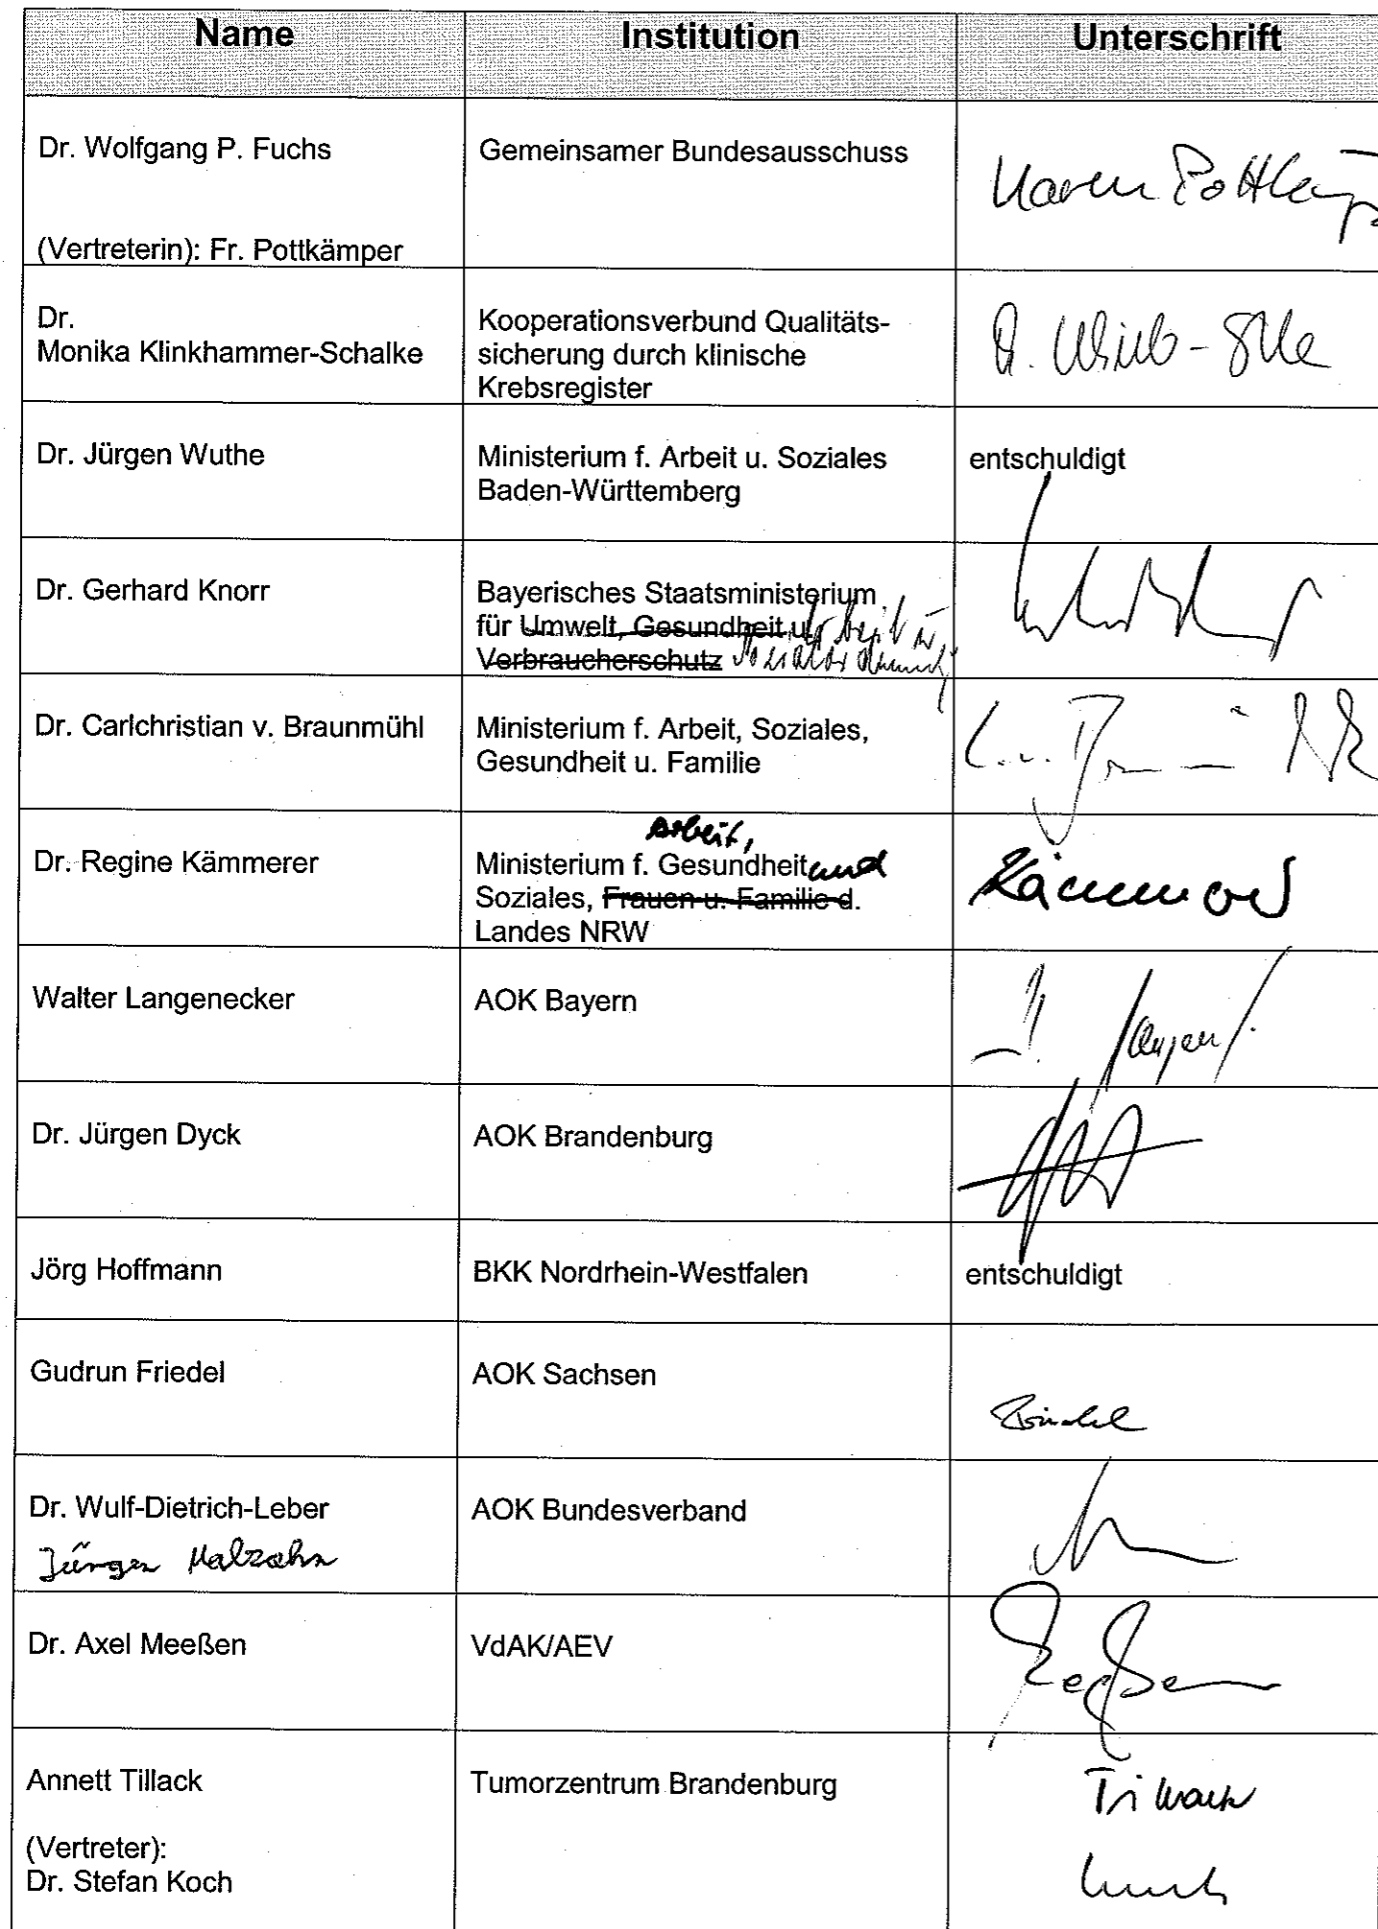 Name Institution Unterschrift
Dr. Wolfgang P. Fuchs Gemeinsamer Bundesausschuss
Karen Pottkämp
(Vertreterin): Fr. Pottkämper
Dr.
Monika Klinkhammer-Schalke
Kooperationsverbund Qualitäts-
sicherung durch klinische
Krebsregister
Dr. Jürgen Wuthe
Ministerium f. Arbeit u. Soziales
Baden-Württemberg
entschuldigt
Dr. Gerhard Knorr
Bayerisches Staatsministerium
für Umwelt, Gesundheit u. Arbeit u.
Verbraucherschutz
Dr. Carlchristian v. Braunmühl
Ministerium f. Arbeit, Soziales,
Gesundheit u. Familie
Dr. Regine Kämmerer
Arbeit,
Ministerium f. Gesundheit und
Soziales, Frauen u. Familie d.
Landes NRW
Kämmerer
Walter Langenecker AOK Bayern
Dr. Jürgen Dyck AOK Brandenburg
Jörg Hoffmann BKK Nordrhein-Westfalen entschuldigt
Gudrun Friedel AOK Sachsen
Friedel
Dr. Wulf-Dietrich-Leber AOK Bundesverband
Jürgen Malzahn
Dr. Axel Meeßen VdAK/AEV
Meeßen
Annett Tillack Tumorzentrum Brandenburg Tillack
(Vertreter):
Dr. Stefan Koch Koch